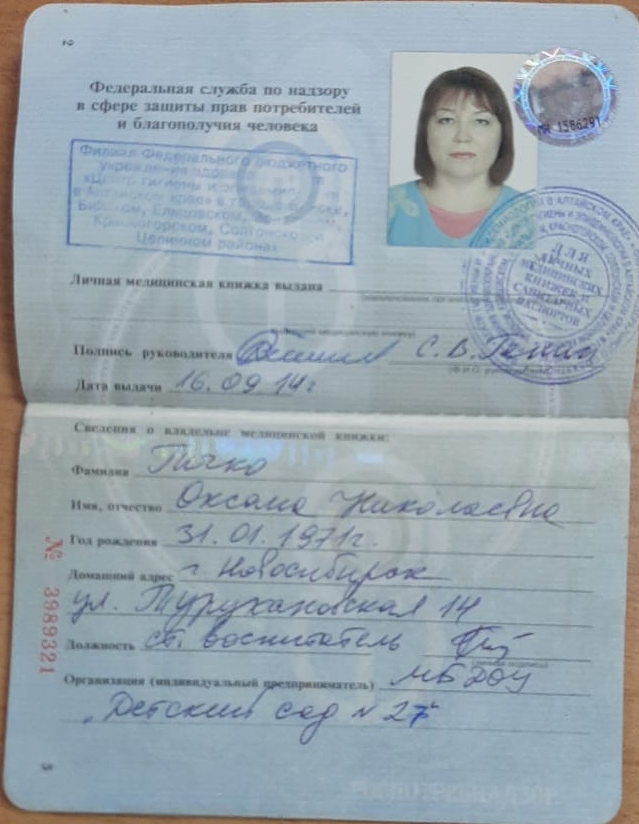 2
Федеральная служба по надзору
в сфере защиты прав потребителей
и благополучия человека
Филиал Федерального бюджетного
учреждения
«Центр гигиены и
в Алтайском крае» в городе Бийске,
Бийском, Ельцовском,
Красногорском, Солтонском,
Целинном районах
1586291
ДЛЯ
ЛИЧНЫХ
МЕДИЦИНСКИХ
КНИЖЕК И
САНИТАРНЫХ
ПАСПОРТОВ
Личная медицинская книжка выдана
Подпись руководителя С. В.
Дата выдачи 16.09.14г
Сведения о владельце медицинской книжки:
Фамилия
Имя, отчество Оксана Николаевна
Год рождения 31.01.1971г.
Домашний адрес г. Новосибирск
ул. Турухановская 14
Должность ст. воспитатель
(личная подпись)
Организация (индивидуальный предприниматель) МБДОУ
„Детский сад № 27"
№ 3989321